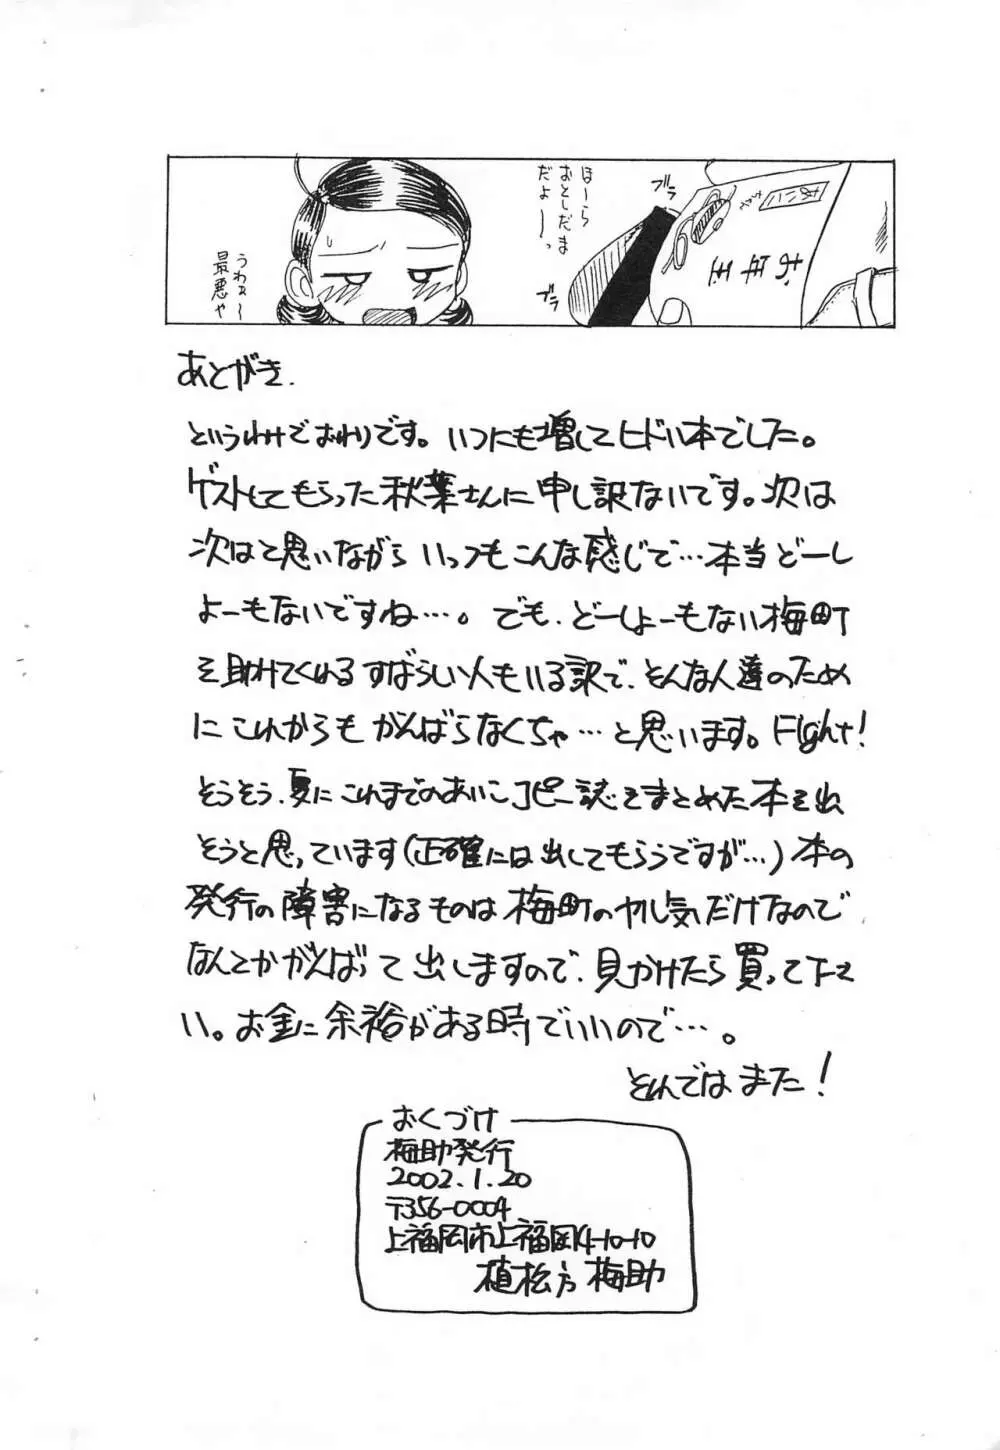 ほーら
おとしだま
だよ～っ
ブラ
ブラ
うわぁ～
最悪や
あとがき.
というわけでおわりです。いつにも増してヒドい本でした。
ゲストしてもらった秋葉さんに申し訳ないです。次は
次はと思いながらいっつもこんな感じで…本当どーし
よーもないですね…。でも、どーしよーもない梅町
を助けてくれるすばらしい人もいる訳で、そんな人達のため
にこれからもがんばらなくちゃ…と思います。Fight!
そうそう、夏にこれまでのあいこコピー誌をまとめた本を出
そうと思っています(正確には出してもらうですが…)本の
発行の障害になるものは梅町のヤル気だけなので
なんとかがんばって出しますので、見かけたら買って下さ
い。お金に余裕がある時でいいので…。
それではまた!
おくづけ
梅助発行
2002.1.20
〒356-0004
上福岡市上福岡4-10-10
植松方 梅助